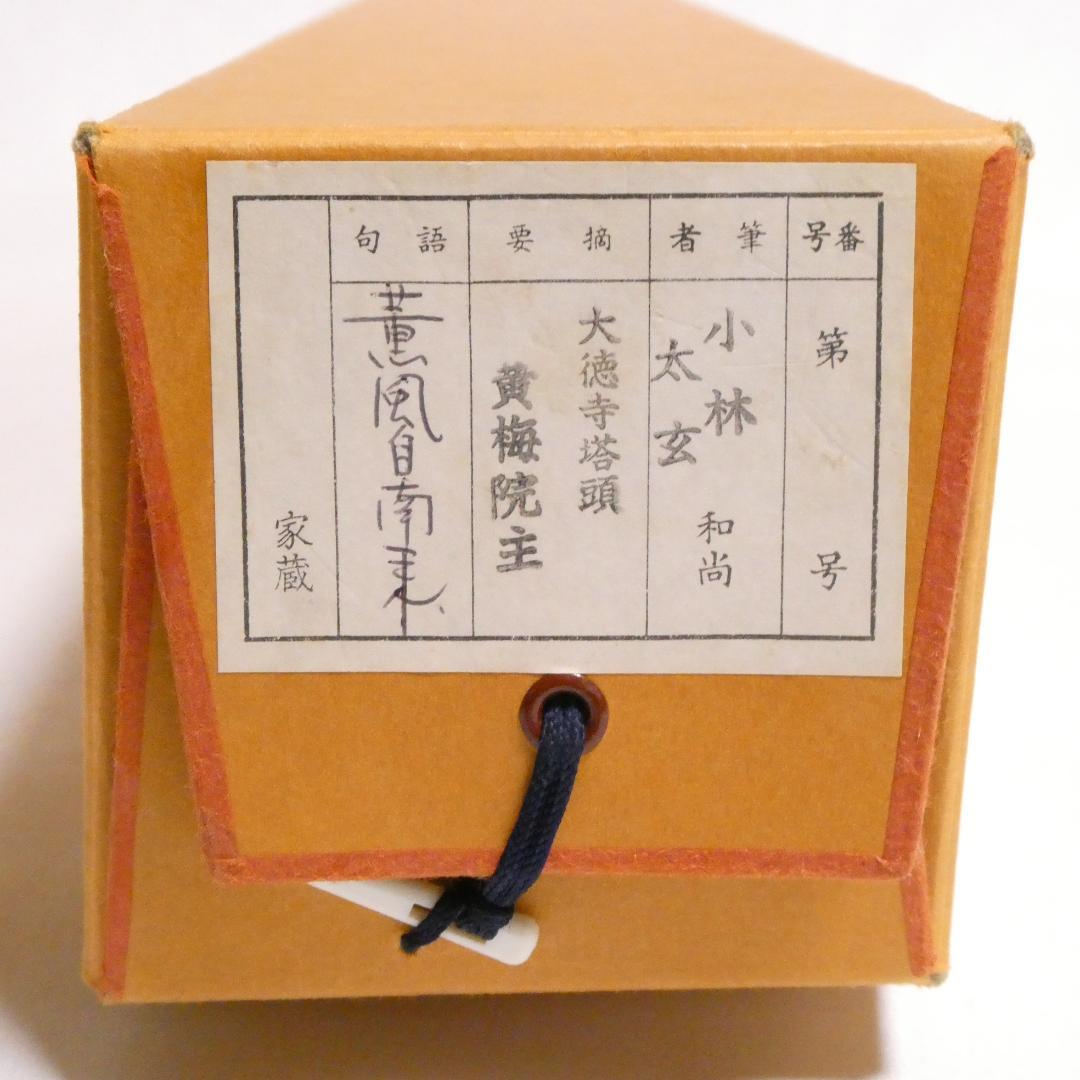 番号
第 号
筆者
小林
太玄
和尚
摘要
大徳寺塔頭
黄梅院主
語句
薫風自南来
家蔵